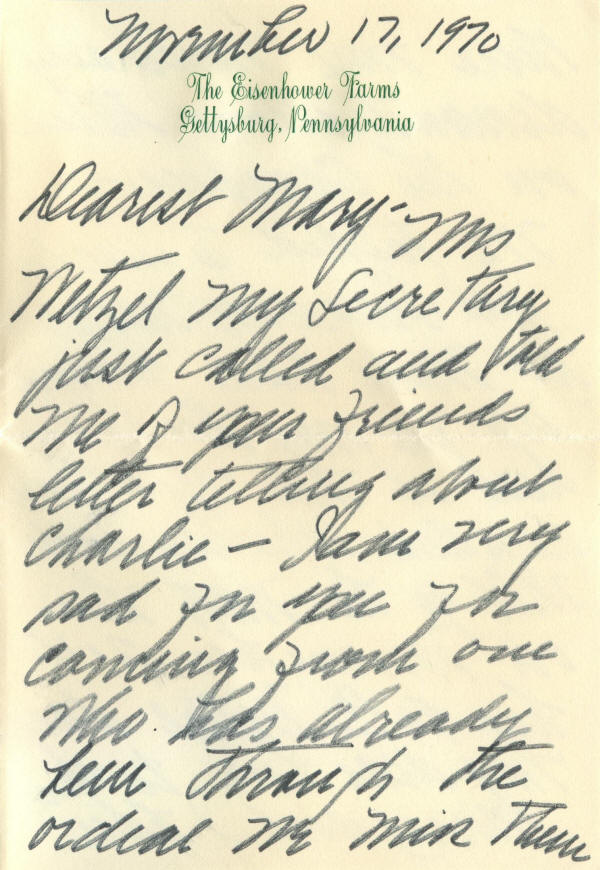 November 17, 1970
The Eisenhower Farms
Gettysburg, Pennsylvania
Dearest Mary- Mrs
Wetzel my Secretary
just called and told
me of your friends
letter telling about
Charlie — I am very
sad for you for
coming from one
who has already
been through the
ordeal we miss them